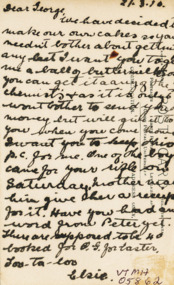 21.3.16.
Dear George,
We have decided to
make our own cakes so you
needn't bother about getting
any but I want you to get
me a
you can get it at the
chemist's & as it is only
I won't bother to send you the
money but will give it to
you when you come home
I want you to keep this
p.c. for me. One of the boys
came for your rifle on
Saturday, Mother made
him give her a receipt
for it. Have you had any
word from Peter yet.
They are supposed to
booked for P.F. for Easter
Too-to-loo
Elsie.
VTMH
05862